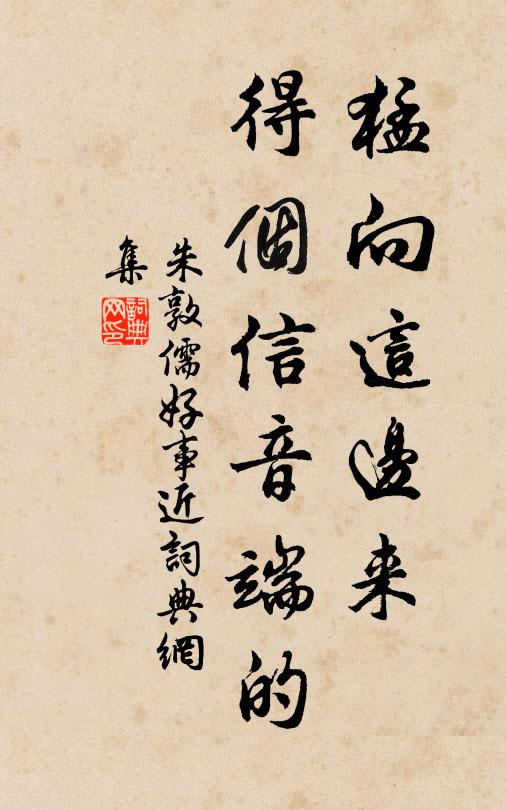 猛向這邊来
得個信音端的
朱敦儒好事近詞典網
集
詞典网印